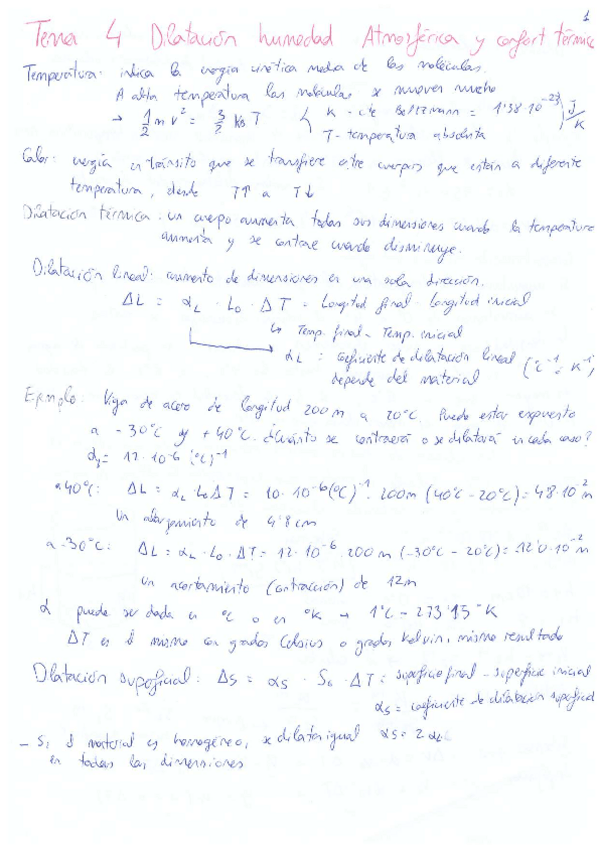 1
Tema 4 Dilatación humedad Atmosférica y confort térmico
Temperatura: indica la energía cinética media de las moléculas.
A alta temperatura las moléculas se mueven mucho
→ 1/2 m v² = 3/2 kB T { k - cte Boltzmann = 1'38·10⁻²³ J/K
T - temperatura absoluta
Calor: energía en tránsito que se transfiere entre cuerpos que están a diferente
temperatura, desde T↑ a T↓
Dilatación térmica: un cuerpo aumenta todas sus dimensiones cuando la temperatura
aumenta y se contrae cuando disminuye.
Dilatación lineal: aumento de dimensiones en una sola dirección.
ΔL = αL · L₀ · ΔT = Longitud final - Longitud inicial
↳ Temp. final - Temp. inicial
αL : coeficiente de dilatación lineal (°C⁻¹ ó K⁻¹)
depende del material
Ejemplo: Viga de acero de longitud 200 m a 20°C. Puede estar expuesto
a -30°C y +40°C. ¿Cuánto se contraerá o se dilatará en cada caso?
αL = 12·10⁻⁶ (°C)⁻¹
a 40°C: ΔL = αL · L₀ ΔT = 10·10⁻⁶ (°C)⁻¹ · 200m (40°C - 20°C) = 4'8·10⁻² m
Un alargamiento de 4'8 cm
a -30°C: ΔL = αL · L₀ · ΔT = 12·10⁻⁶ · 200 m (-30°C - 20°C) = -12'0·10⁻² m
un acortamiento (contracción) de 12m
α puede ser dada en °C o en °K → 1°C - 273'15 °K
ΔT es el mismo con grados Celsius o grados Kelvin, mismo resultado
Dilatación superficial: ΔS = αS · S₀ · ΔT = superficie final - superficie inicial
αS = coeficiente de dilatación superficial
- Si el material es homogéneo, se dilata igual αS = 2 αL
en todas las dimensiones